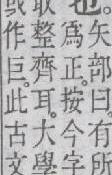 也。矢部曰。有所
取整齊耳。大學
爲正。按今字
或作巨。此古文